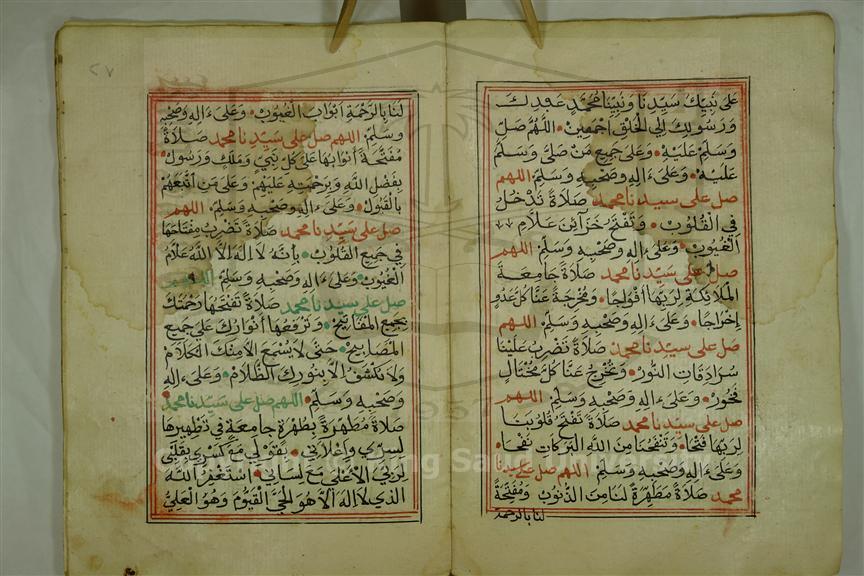 على نبيك سيدنا ونبينا محمد عبدك
ورسولك الى الخلق اجمعين اللهم صل
وسلم عليه وعلى جميع من صلى وسلم
عليه وعلى ءاله وصحبه وسلم اللهم
صل على سيدنا محمد صلاة تدخل
في القلوب وتفتح خزآئن علام
الغيوب وعلى ءاله وصحبه وسلم اللهم
صل على سيدنا محمد صلاة جامعة
الملائكة لربها افواجا ومخرجة عنا كل عدو
إخراجا وعلى ءاله وصحبه وسلم اللهم
صل على سيدنا محمد صلاة تضرب علينا
سرادقات النور وتخرج عنا كل مختال
فخور وعلى ءاله وصحبه وسلم اللهم
صل على سيدنا محمد صلاة تفتح قلوبنا
لربها فتحا وتنفحنا من الله البركات نفحا
وعلى ءاله وصحبه وسلم اللهم صل على سيدنا
محمد صلاة مطهرة لنا من الذنوب ومفتحة
لنا بالرحمة
٢٧
لنا بالرحمة ابواب الغيوب وعلى ءاله وصحبه
وسلم اللهم صل على سيدنا محمد صلاة
مفتحة أبوابها على كل نبي وملك ورسول
بفضل الله وبرحمته عليهم وعلى من اتبعهم
بالقبول وعلى ءاله وصحبه وسلم اللهم
صل على سيدنا محمد صلاة تضرب مفتاحها
في جميع القلوب بأنه لا اله الا الله علام
الغيوب وعلى ءاله وصحبه وسلم اللهم
صل على سيدنا محمد صلاة تفتحها رحمتك
بجميع المفاتيح وترفعها أنوارك على جميع
المصابيح حتى لا يسمع الا منك الكلام
ولا نكشف الا بنورك الظلام وعلى ءاله
وصحبه وسلم اللهم صل على سيدنا محمد
صلاة مطهرة بطهرة جامعة في تطهيرها
لسري وإعلاني بقولي مع كسري بقلبي
لربي الأعلى مع لساني استغفر الله
الذي لا اله الا هو الحي القيوم وهو العلي